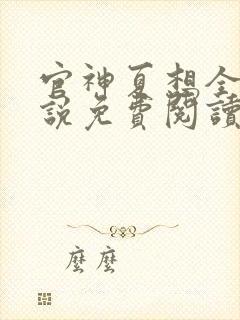 官神夏想全
說免費閱讀
麼麼